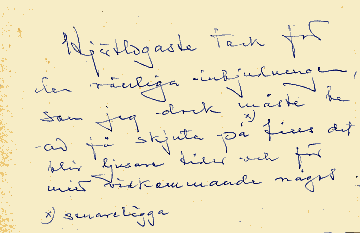 Hjärtligaste Tack för
den vänliga inbjudningen,
som jag dock måste be
att få skjuta på x) det
blir ljusare tider och för
mig
x) senarelägga